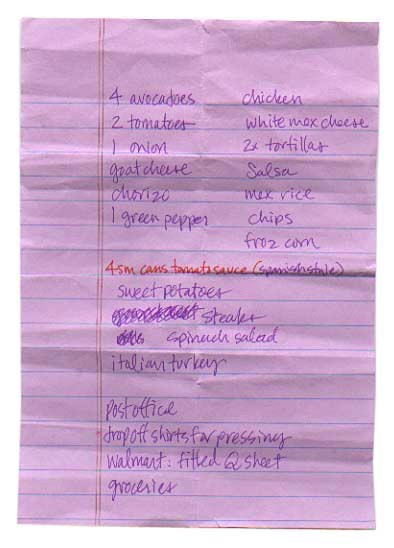 4 avocadoes
2 tomatoes
1 onion
goat cheese
chorizo
1 green pepper
chicken
white mex cheese
2x tortillas
Salsa
mex rice
chips
froz corn
4 sm cans tomato sauce (spanish style)
sweet potatoes
steaks
spinach salad
italian turkey
post office
drop off shirts for pressing
walmart: fitted Q sheet
groceries